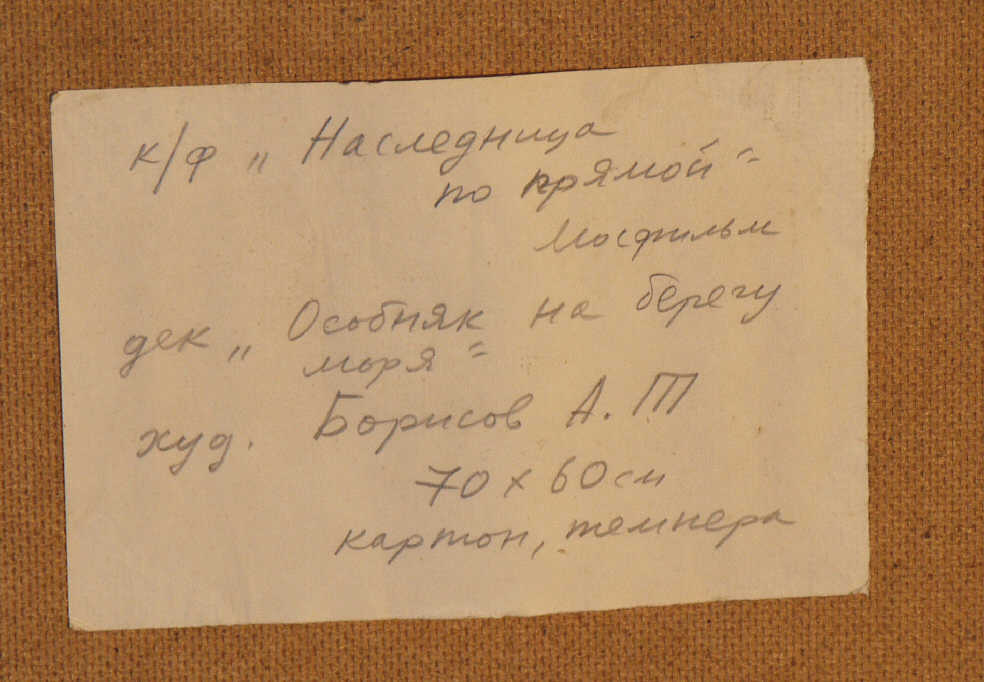 к/ф „Наследница
по прямой"
Мосфильм
дек „Особняк на берегу
моря"
худ. Борисов А. Т
70 х 60 см
картон, темпера